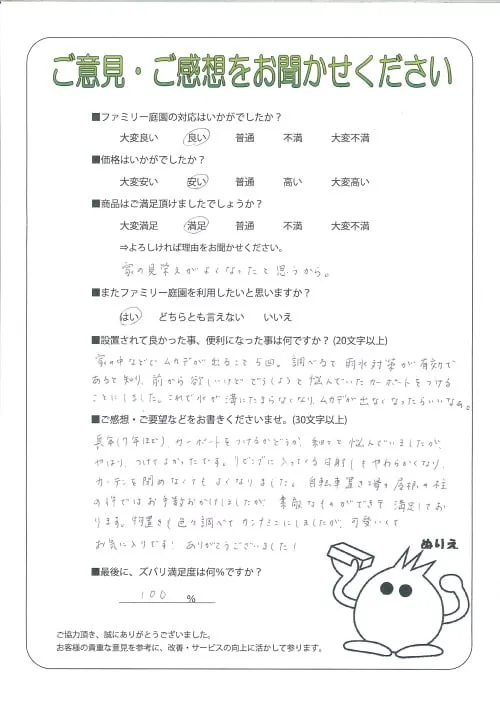 ご意見・ご感想をお聞かせください
■ファミリー庭園の対応はいかがでしたか？
大変良い 良い 普通 不満 大変不満
■価格はいかがでしたか？
大変安い 安い 普通 高い 大変高い
■商品はご満足頂けましたでしょうか？
大変満足 満足 普通 不満 大変不満
⇒よろしければ理由をお聞かせください。
家の見栄えがよくなったと思うから。
■またファミリー庭園を利用したいと思いますか？
はい どちらとも言えない いいえ
■設置されて良かった事、便利になった事は何ですか？(20文字以上)
家の中などでムカデが出ること5回。調べると雨水対策が有効で
あると知り、前から欲しいけどどうしようと悩んでいたカーポートをつける
ことにしました。これで水が溝にたまらなくなり、ムカデが出なくなったらいいなぁ。
■ご感想・ご要望などをお書きくださいませ。(30文字以上)
長年(7年ほど)、カーポートをつけるかどうか、悩んでいましたが、
やはり、つけてよかったです。リビングに入ってくる日射しもやわらかくなり、
カーテンを閉めなくてもよくなりました。自転車置き場の屋根の柱
の件ではお手数おかけしましたが、素敵なものができて満足してお
ります。物置きも色々調べてカンナミニにしましたが、可愛いくて
お気に入りです！ありがとうございました！
ぬりえ
■最後に、ズバリ満足度は何％ですか？
100 %
ご協力頂き、誠にありがとうございました。
お客様の貴重な意見を参考に、改善・サービスの向上に活かして参ります。